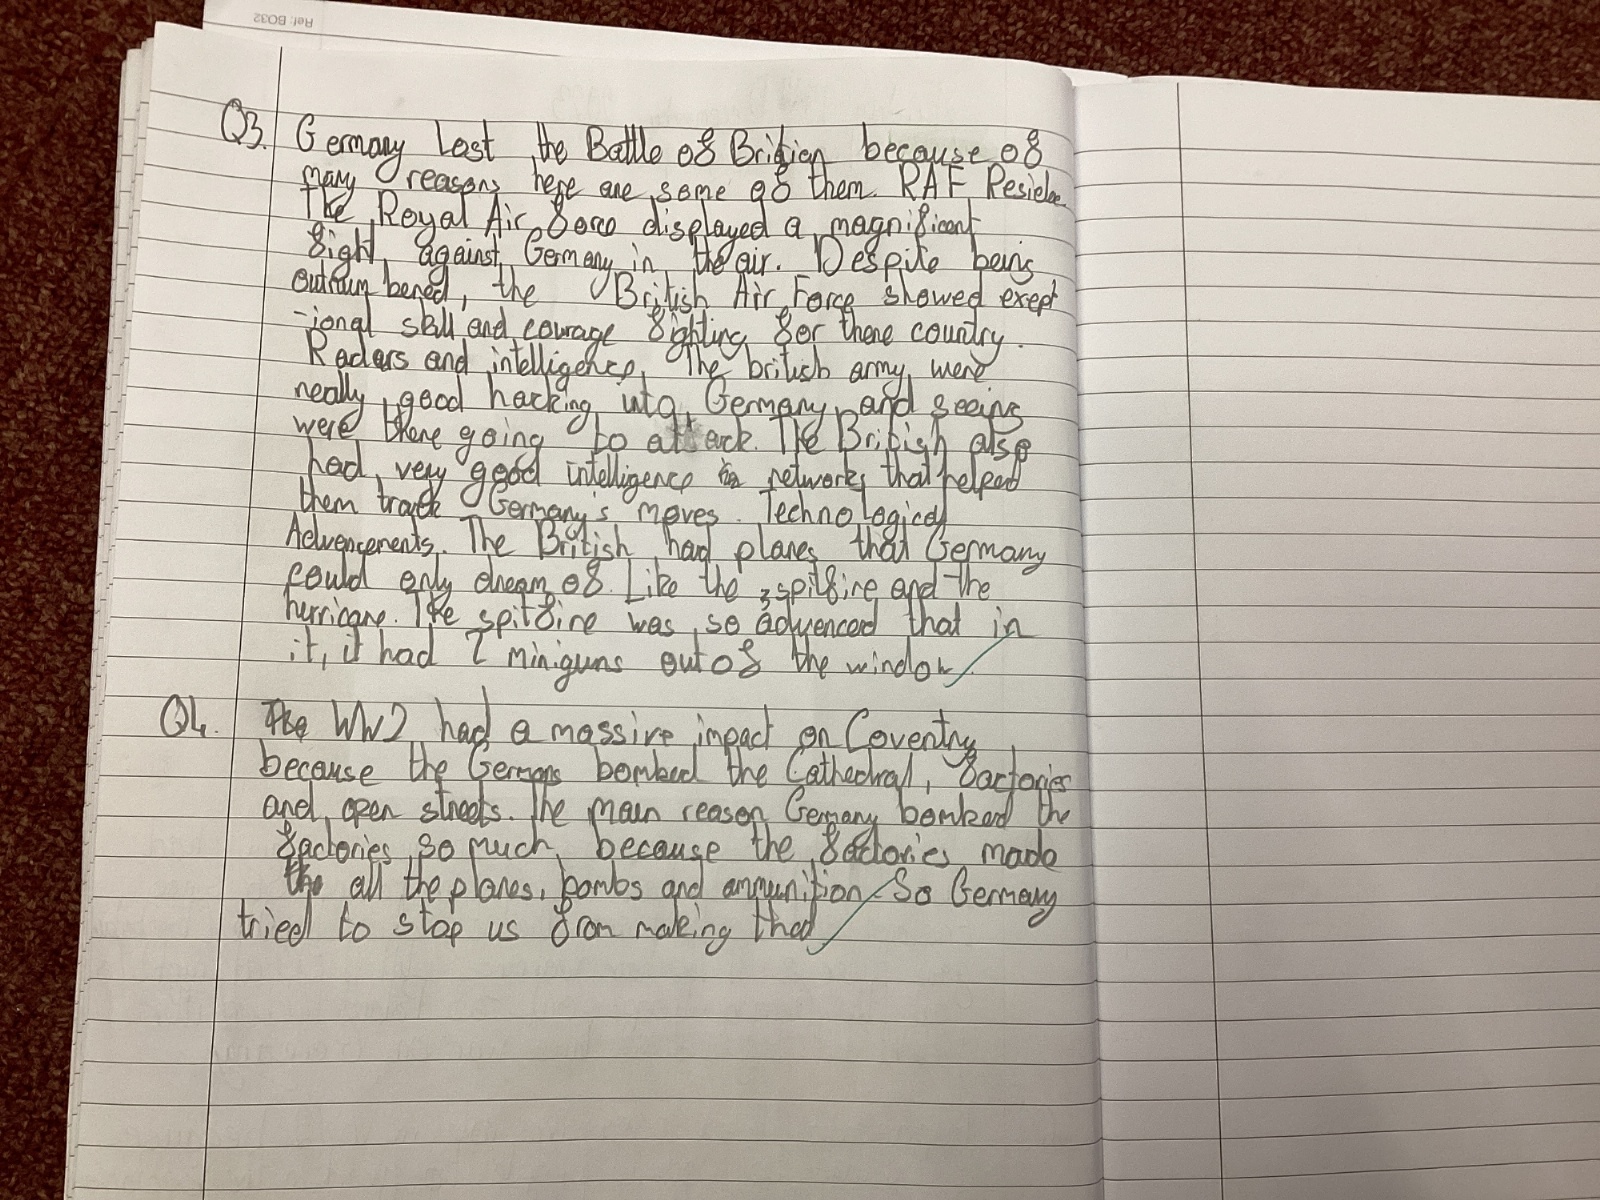 Ref: BO32
Q3. Germany Lost the Battle of Britian because of
many reasons here are some of them. RAF Resiele
The Royal Air force displayed a magnificant
fight against Germany in the air. Despite being
outnumbered, the British Air Force showed exept
-ional skill and courage fighting for there country.
Radars and intelligence, The british army were
really good hacking into Germany and seeing
were there going to attack. The British also
had very good intelligence networks that helped
them track Germany's moves. Technological
Advencements. The British had planes that Germany
could only dream of. Like the spitfire and the
hurricane. The spitfire was so advenced that in
it, it had 2 miniguns out of the window.
Q4. The WW2 had a massive impact on Coventry
because the Germans bombed the Cathedral, factories
and open streets. The main reason Germany bombed the
factories so much, because the factories made
the all the planes, bombs and ammunition. So Germany
tried to stop us from making that